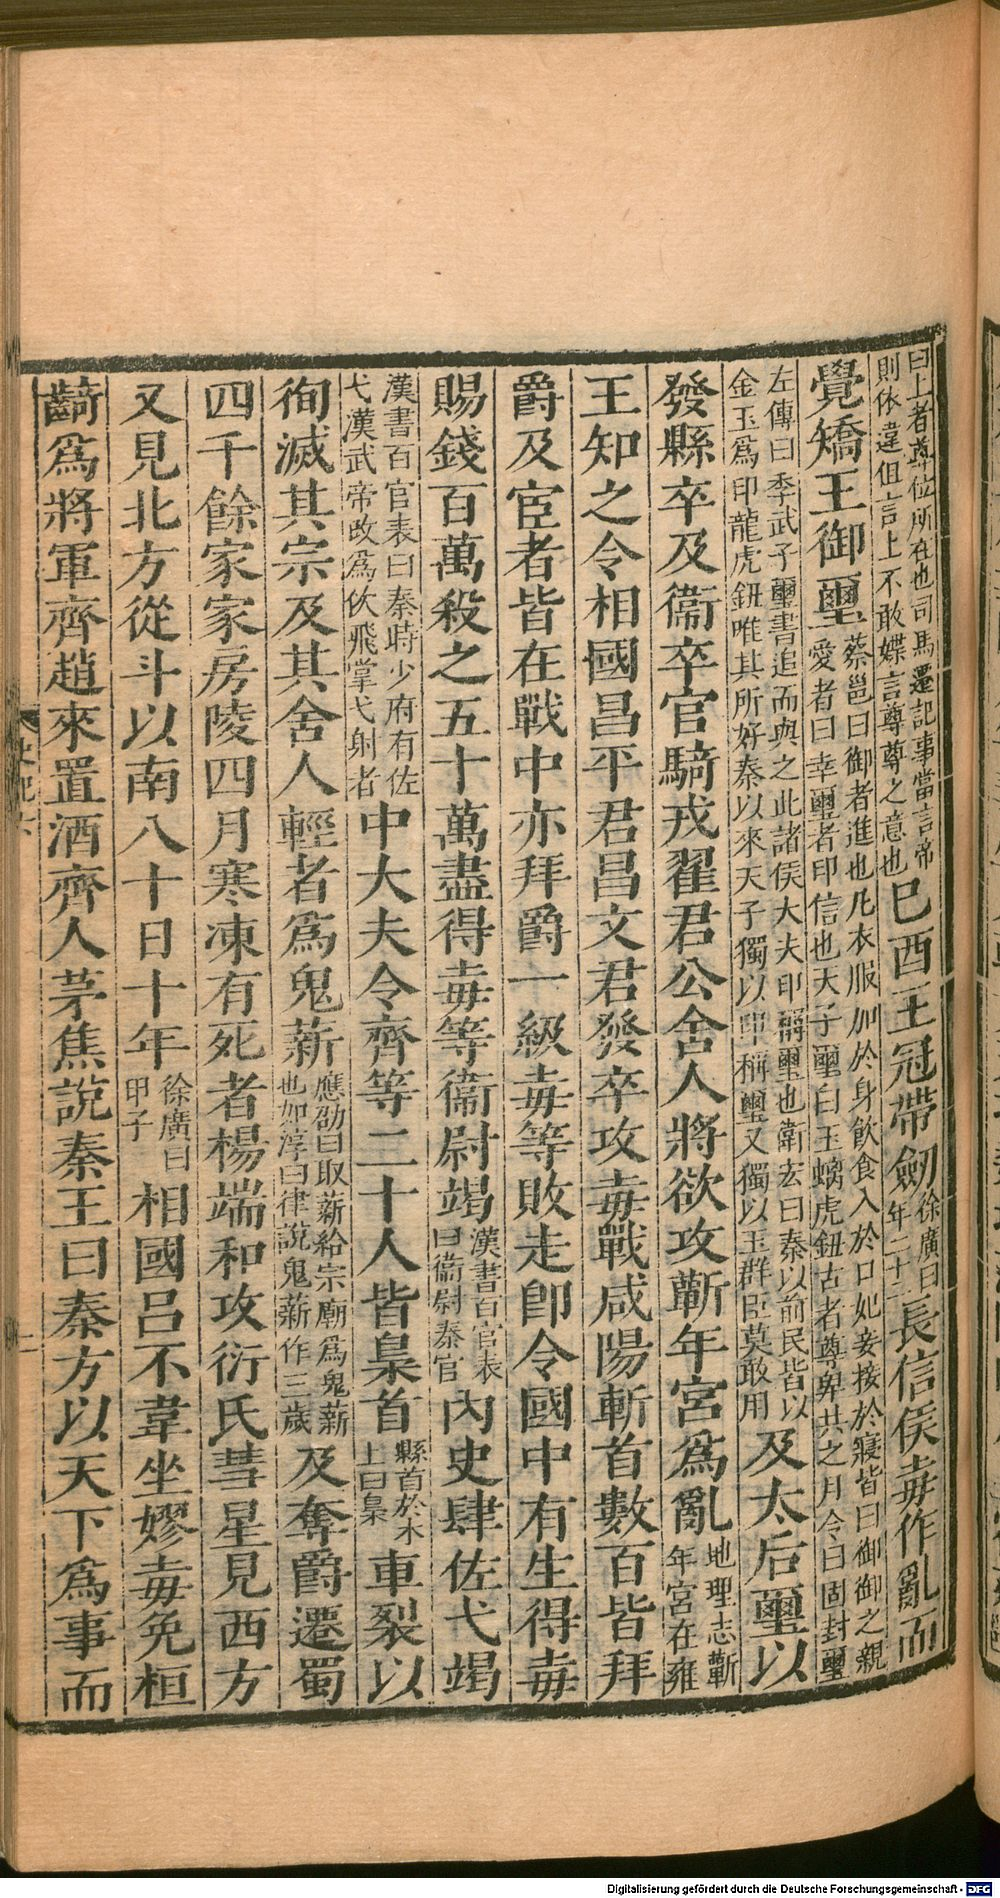 曰上者尊位所在也司馬遷記事當言帝
則依違但言上不敢媟言尊尊之意也
己酉王冠帶劒
徐廣曰
年二十二
長信侯毐作亂而
覺矯王御璽
蔡邕曰御者進也凡衣服加於身飲食入於口妃妾接於寢皆曰御御之親
愛者曰幸璽者印信也天子璽白玉螭虎鈕古者尊卑共之月令曰固封璽
左傳曰季武子璽書追而與之此諸侯大夫印稱璽也衛宏曰秦以前民皆以
金玉爲印龍虎鈕唯其所好秦以來天子獨以印稱璽又獨以玉群臣莫敢用
及太后璽以
發縣卒及衞卒官騎戎翟君公舍人將欲攻蘄年宮爲亂
地理志蘄
年宮在雍
王知之令相國昌平君昌文君發卒攻毐戰咸陽斬首數百皆拜
爵及宦者皆在戰中亦拜爵一級毐等敗走卽令國中有生得毐
賜錢百萬殺之五十萬盡得毐等衞尉竭
漢書百官表
曰衞尉秦官
內史肆佐弋竭
漢書百官表曰秦時少府有佐
弋漢武帝改爲佽飛掌弋射者
中大夫令齊等二十人皆梟首
縣首於木
上曰梟
車裂以
徇滅其宗及其舍人輕者爲鬼薪
應劭曰取薪給宗廟爲鬼薪
也如淳曰律說鬼薪作三歲
及奪爵遷蜀
四千餘家家房陵四月寒凍有死者楊端和攻衍氏彗星見西方
又見北方從斗以南八十日十年
徐廣曰
甲子
相國呂不韋坐嫪毐免桓
齮爲將軍齊趙來置酒齊人茅焦說秦王曰秦方以天下爲事而
史記六
Digitalisierung gefördert durch die Deutsche Forschungsgemeinschaft - DFG